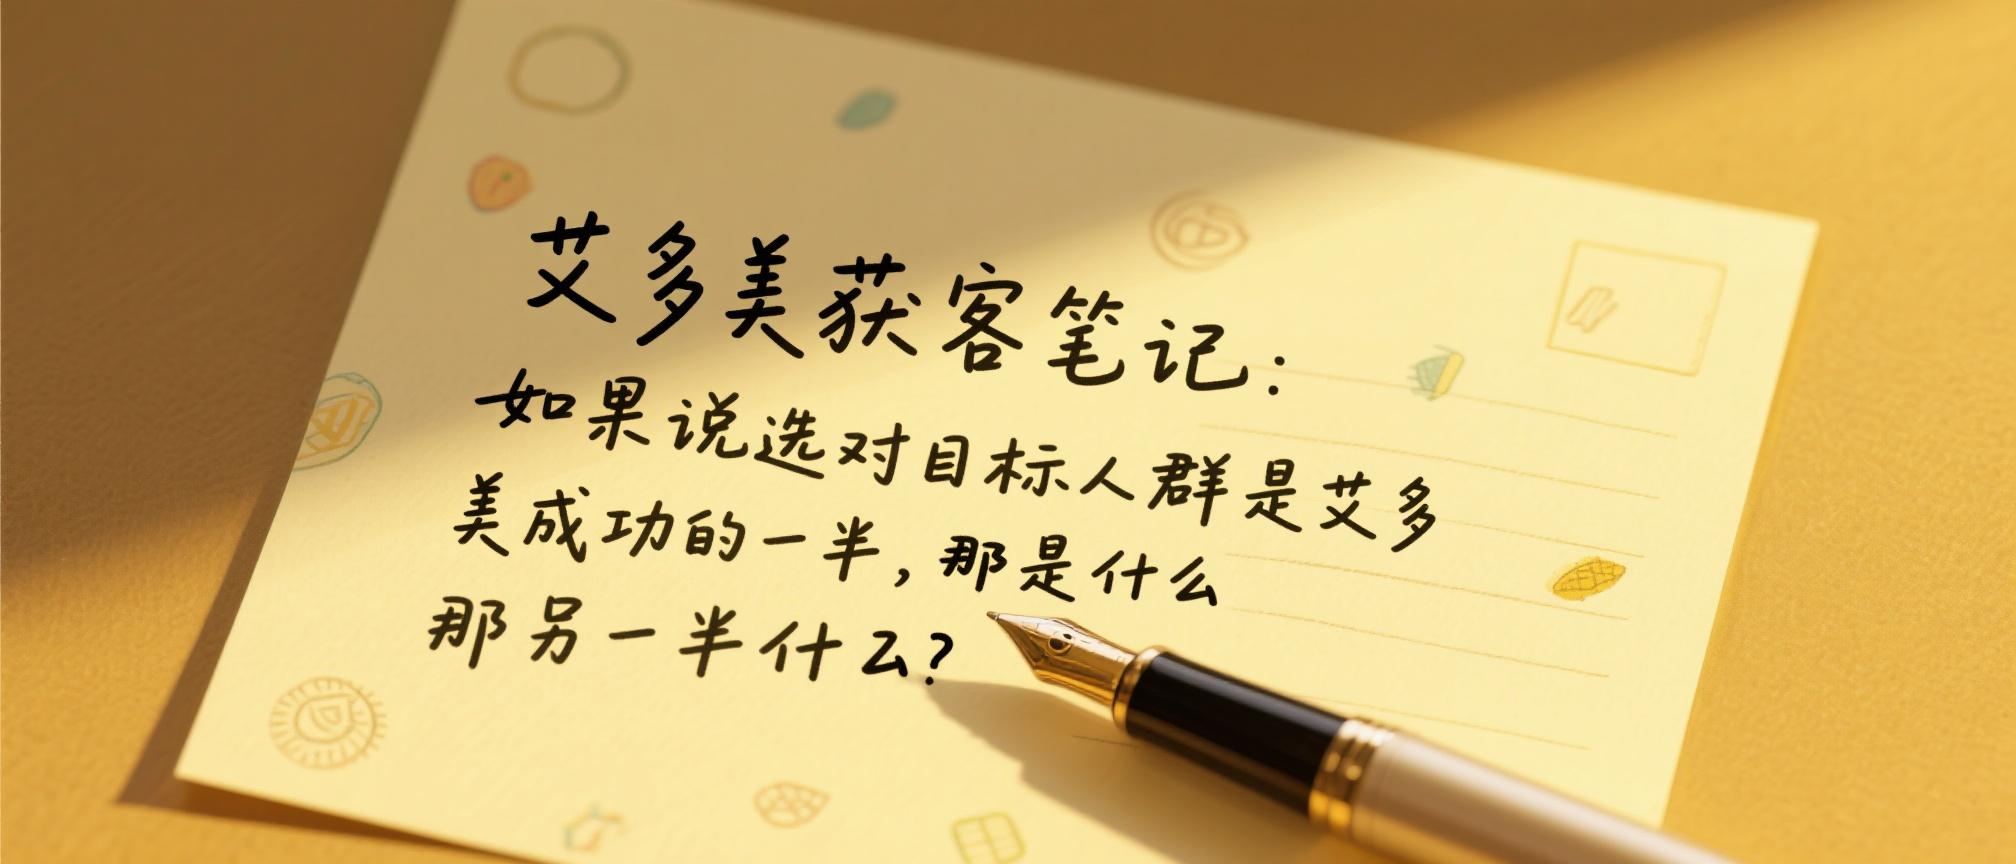 艾多美获客笔记：
如果说选对目标人群是艾多
美成功的一半，那是什么
那另一半什么？